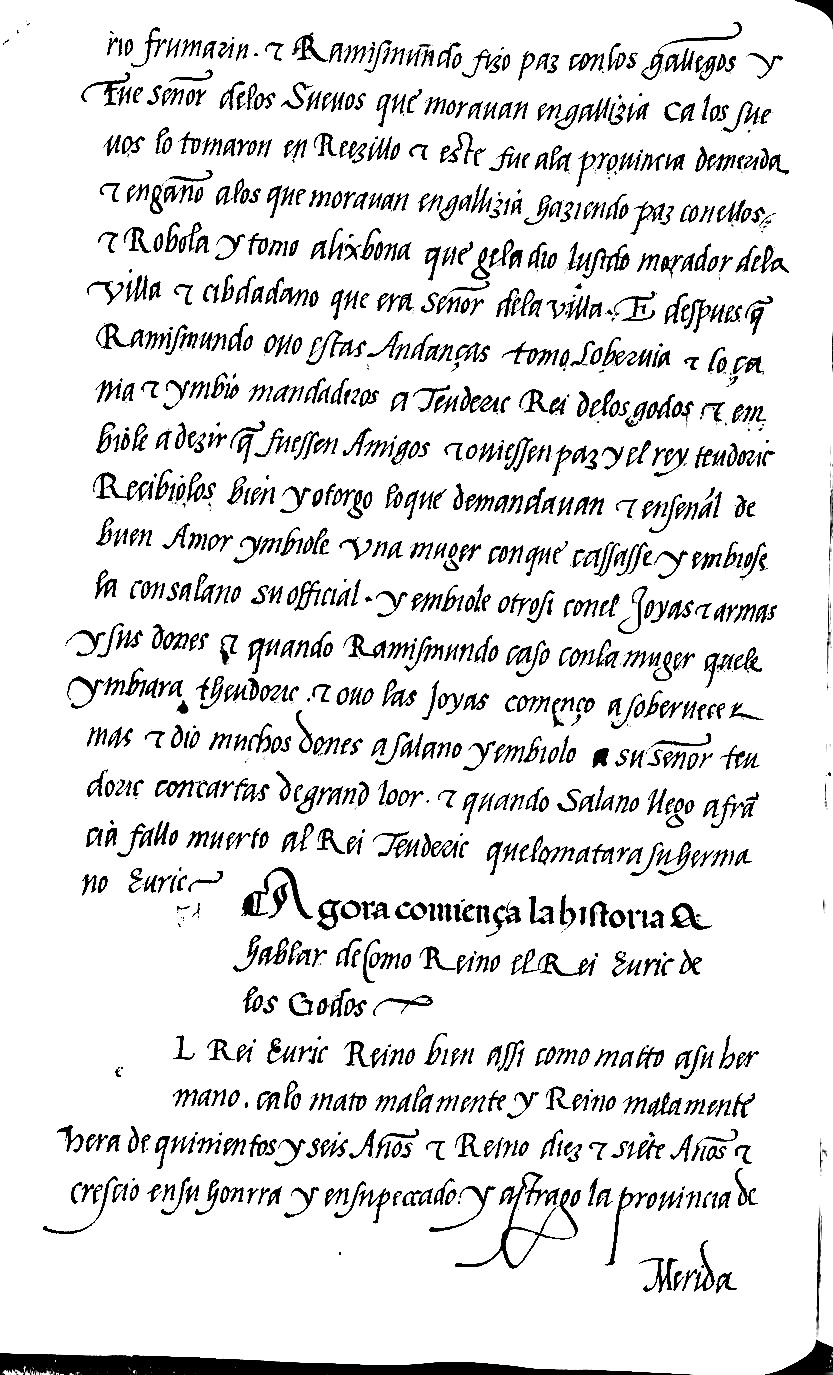 rio frumarin. τ Ramismundo fizo paz conlos gallegos y
Fue señor delos Suevos que moravan engallizia ca los sue
vos lo tomaron en Reezillo τ este fue ala provincia demerida
τ engaño alos que moravan engallizia haziendo paz conellos
τ Robola y tomo alixbona que gela dio lusido morador dela
villa τ cibdadano que era señor dela villa. E despues q̃
Ramismundo ovo estas Andanças tomo Sobervia τ loça
nia τ ymbio mandaderos a Teuderic Rei delos godos τ em
biole adezir q̃ fuessen Amigos τ oviessen paz y el rey teudoric
Recibiolos bien y otorgo loque demandavan τ enseñal de
buen Amor ymbiole vna muger conque cassasse y embiose
la consalano su official. y embiole otrosi conel Joyas τ armas
y sus dones τ quando Ramismundo caso conla muger quele
ymbiara theudoric. τ ovo las Joyas començo asobervecer
mas τ dio muchos dones asalano yembiolo a su señor teu
doric concartas degrand loor. τ quando Salano llego afrã
cia fallo muerto al Rei Teuderic quelomatara suherma
no Euric
Agora comiença la historia A
hablar de como Reino el Rei Euric de
los Godos
e L Rei Euric Reino bien assi como matto asu her
mano. calo mato malamente y Reino malamente
hera de quinientos y seis Años τ Reino diez τ siete Años τ
crescio ensu honrra y ensupeccado y astrago la provincia de
Merida